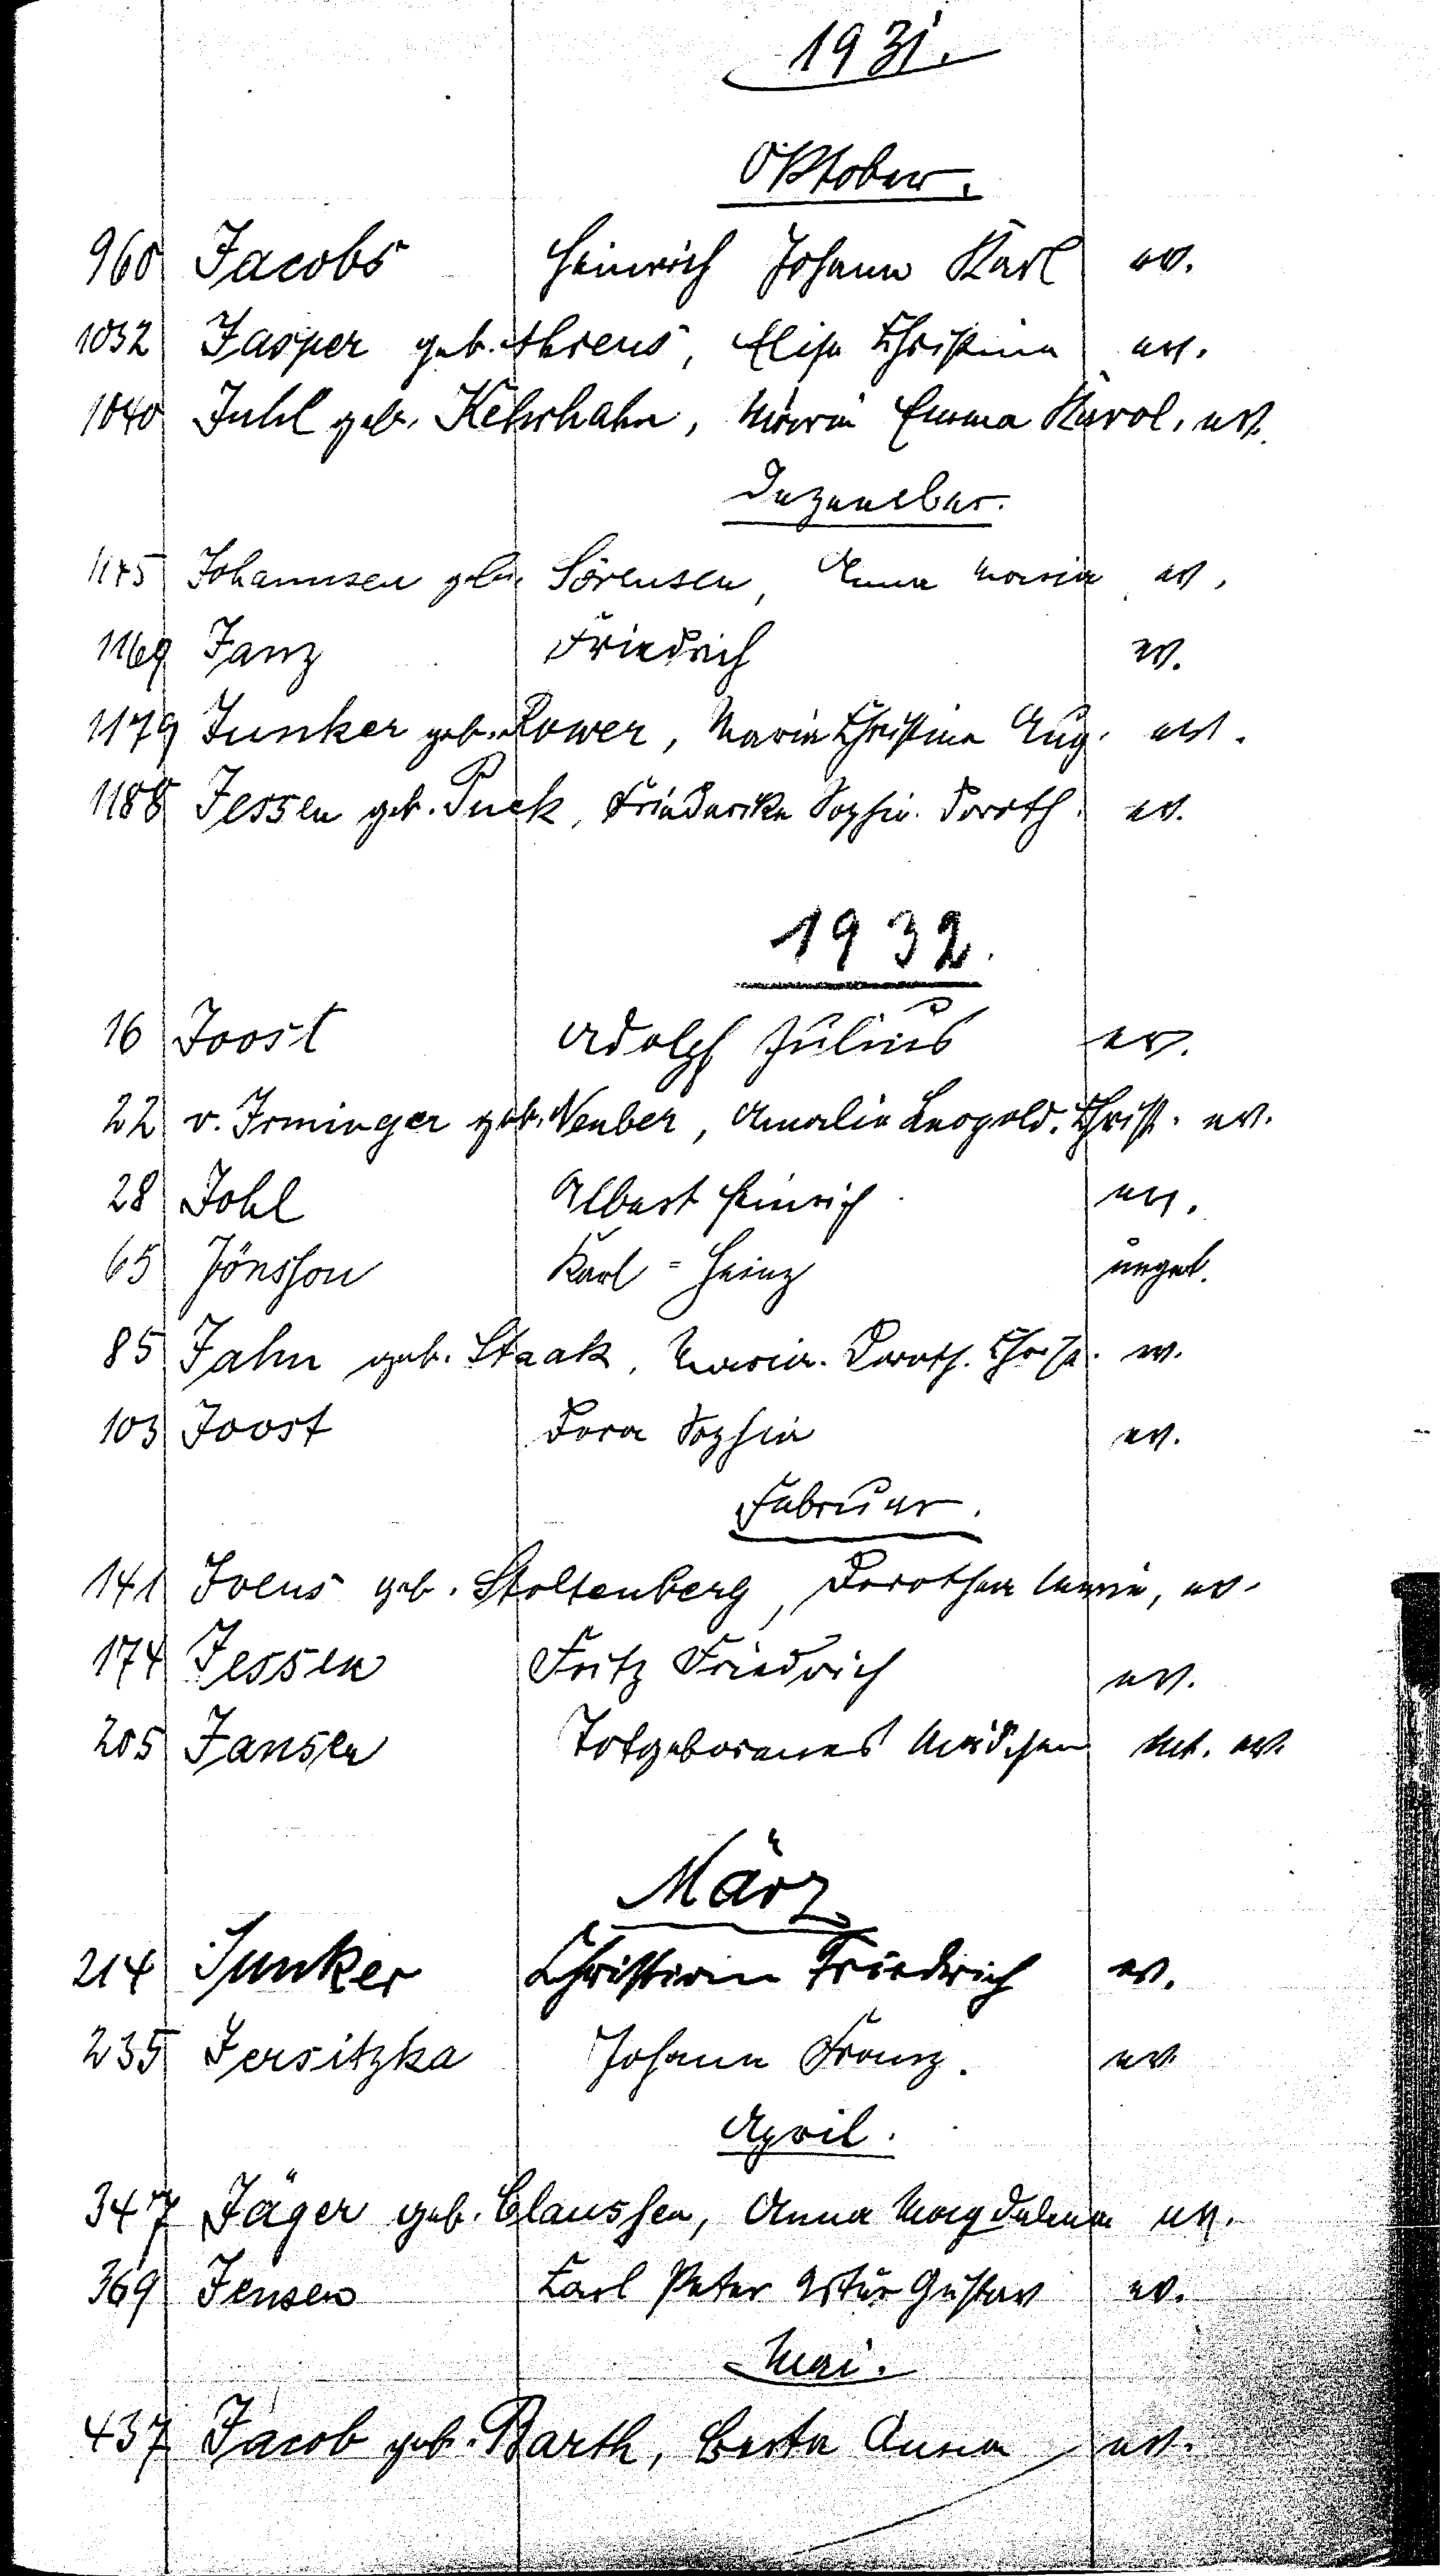 1931.
Oktober.
960 Jacobs Heinrich Johann Karl ev.
1032 Jasper geb. Ahrens, Elise Christine ev.
1040 Juhl geb. Kehrhahn, Maria Emma Karol. ev.
Dezember.
1145 Johannsen geb. Sörensen, Anna Maria ev.
1169 Janz Friedrich ev.
1179 Junker geb. Rower, Maria Christine Aug. ev.
1188 Jessen geb. Puck, Friederike Sophie Doroth. ev.
1932.
16 Joost Adolph Julius ev.
22 v. Irminger geb. Neuber, Amalie Leopold. Christ. ev.
28 Johl Albert Heinrich ev.
65 Jönsson Karl = Heinz unget.
85 Jahn geb. Staak, Maria Doroth. ev.
103 Joost Dora Sophie ev.
Februar.
141 Ivens geb. Stoltenberg, Dorothea Maria, ev.
174 Jessen Fritz Friedrich ev.
205 Jansen Totgeborenes Mädchen ev.
März
214 Junker Christian Friedrich ev.
235 Jersitzka Johann Franz. ev.
April.
347 Jäger geb. Claussen, Anna Magdalena ev.
369 Jensen Karl Peter Artur Gustav ev.
Mai.
437 Jacob geb. Barth, Berta Anna ev.